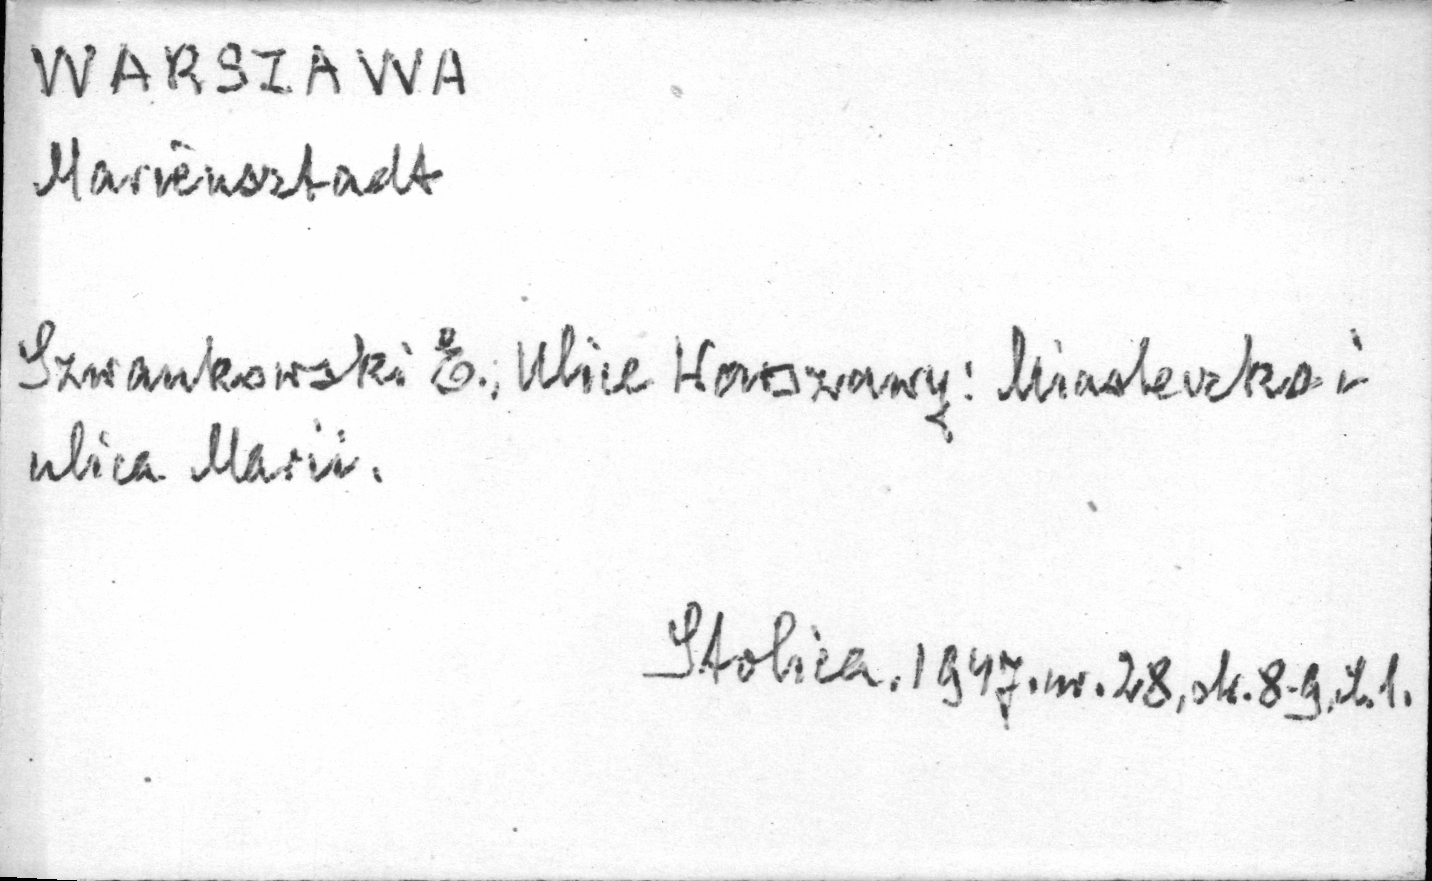 WARSZAWA
Mariensztadt
Szwankowski E., Ulice Warszawy: Miasteczko i
ulica Marii.
Stolica. 1947. nr. 28, str. 8-9, il. 1.